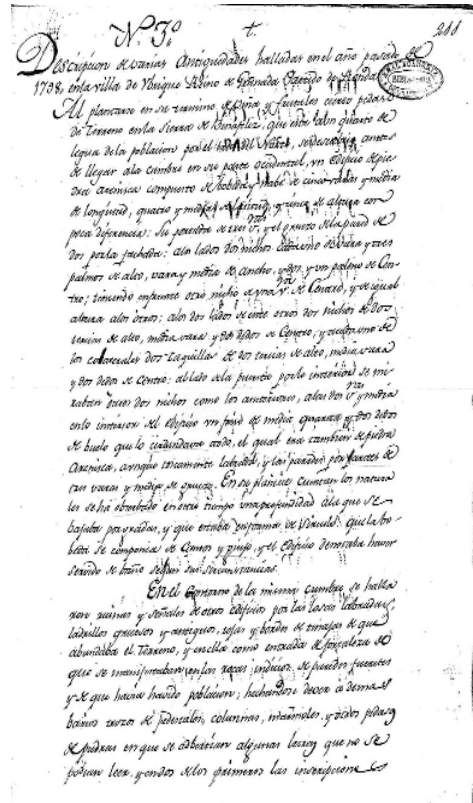 N.º 3.º
t.
288
Descripcion de varias Antiguedades halladas en el año pasado de
1798, en la villa de Reino de Granada Partido de Ronda
Al plantarse en su termino de viña y frutales cierto pedazo
de Terreno en la Sierra de que esta a un quarto de
legua de la poblacion por el lado del Norte, se antes
de llegar a la cumbre en su parte occidental, un edificio de pie
dra arenisca compuesto de bobeda y nabe de cinco varas y media
de longitud, quatro y media de latitud, y unas de altura con
poca diferencia: Su portada de tres v.ras y el grueso de la pared de
dos por la fachada: a los lados dos nichos cada uno de vara y tres
palmos de alto, vara y media de ancho, y un palmo de Cen
tro; teniendo enfrente otro nicho de v.ra de Centro, y de igual
altura a los otros: a los dos lados de este otros dos nichos de dos
tercias de alto, media vara y dos dedos de Centro; y cada uno de
los colaterales dos Taquillas de dos tercias de alto, media vara
y dos dedos de Centro: al lado de la puerta por lo interior se mi
raban otros dos nichos como los anteriores, a las dos v.ras y media
en lo interior del edificio un de media quarta y dos dedos
de buelo que lo circundava todo, el qual era tambien de piedra
Arenisca, aunque toscamente labrada, y las paredes por partes de
tres varas y media de grueso. En su planicie cuentan los natura
les se ha observado en otro tiempo una profundidad a la que se
bajaba por gradas, y que estaba en forma de La bo
beda se componia de Cantos y y el Edificio denotaba haver
servido de baño segun sus circunstancias.
En el Contorno de la misma cumbre se halla
ron ruinas y señales de otros edificios por las losas labradas,
ladrillos gruesos y antiguos, tejas y bordes de tinajas de que
abundaba el terreno, y en ella como entrada de fortaleza de
que se manifestaban en las rocas indicios de paredes fuertes
y de que havia havido poblacion; hechandose de ver ademas
barios trozos de pedestales, columnas, marmoles, y otros pedazos
de piedras en que se advertian algunas letras que no se
podian leer, y en dos de los primeros las inscripciones